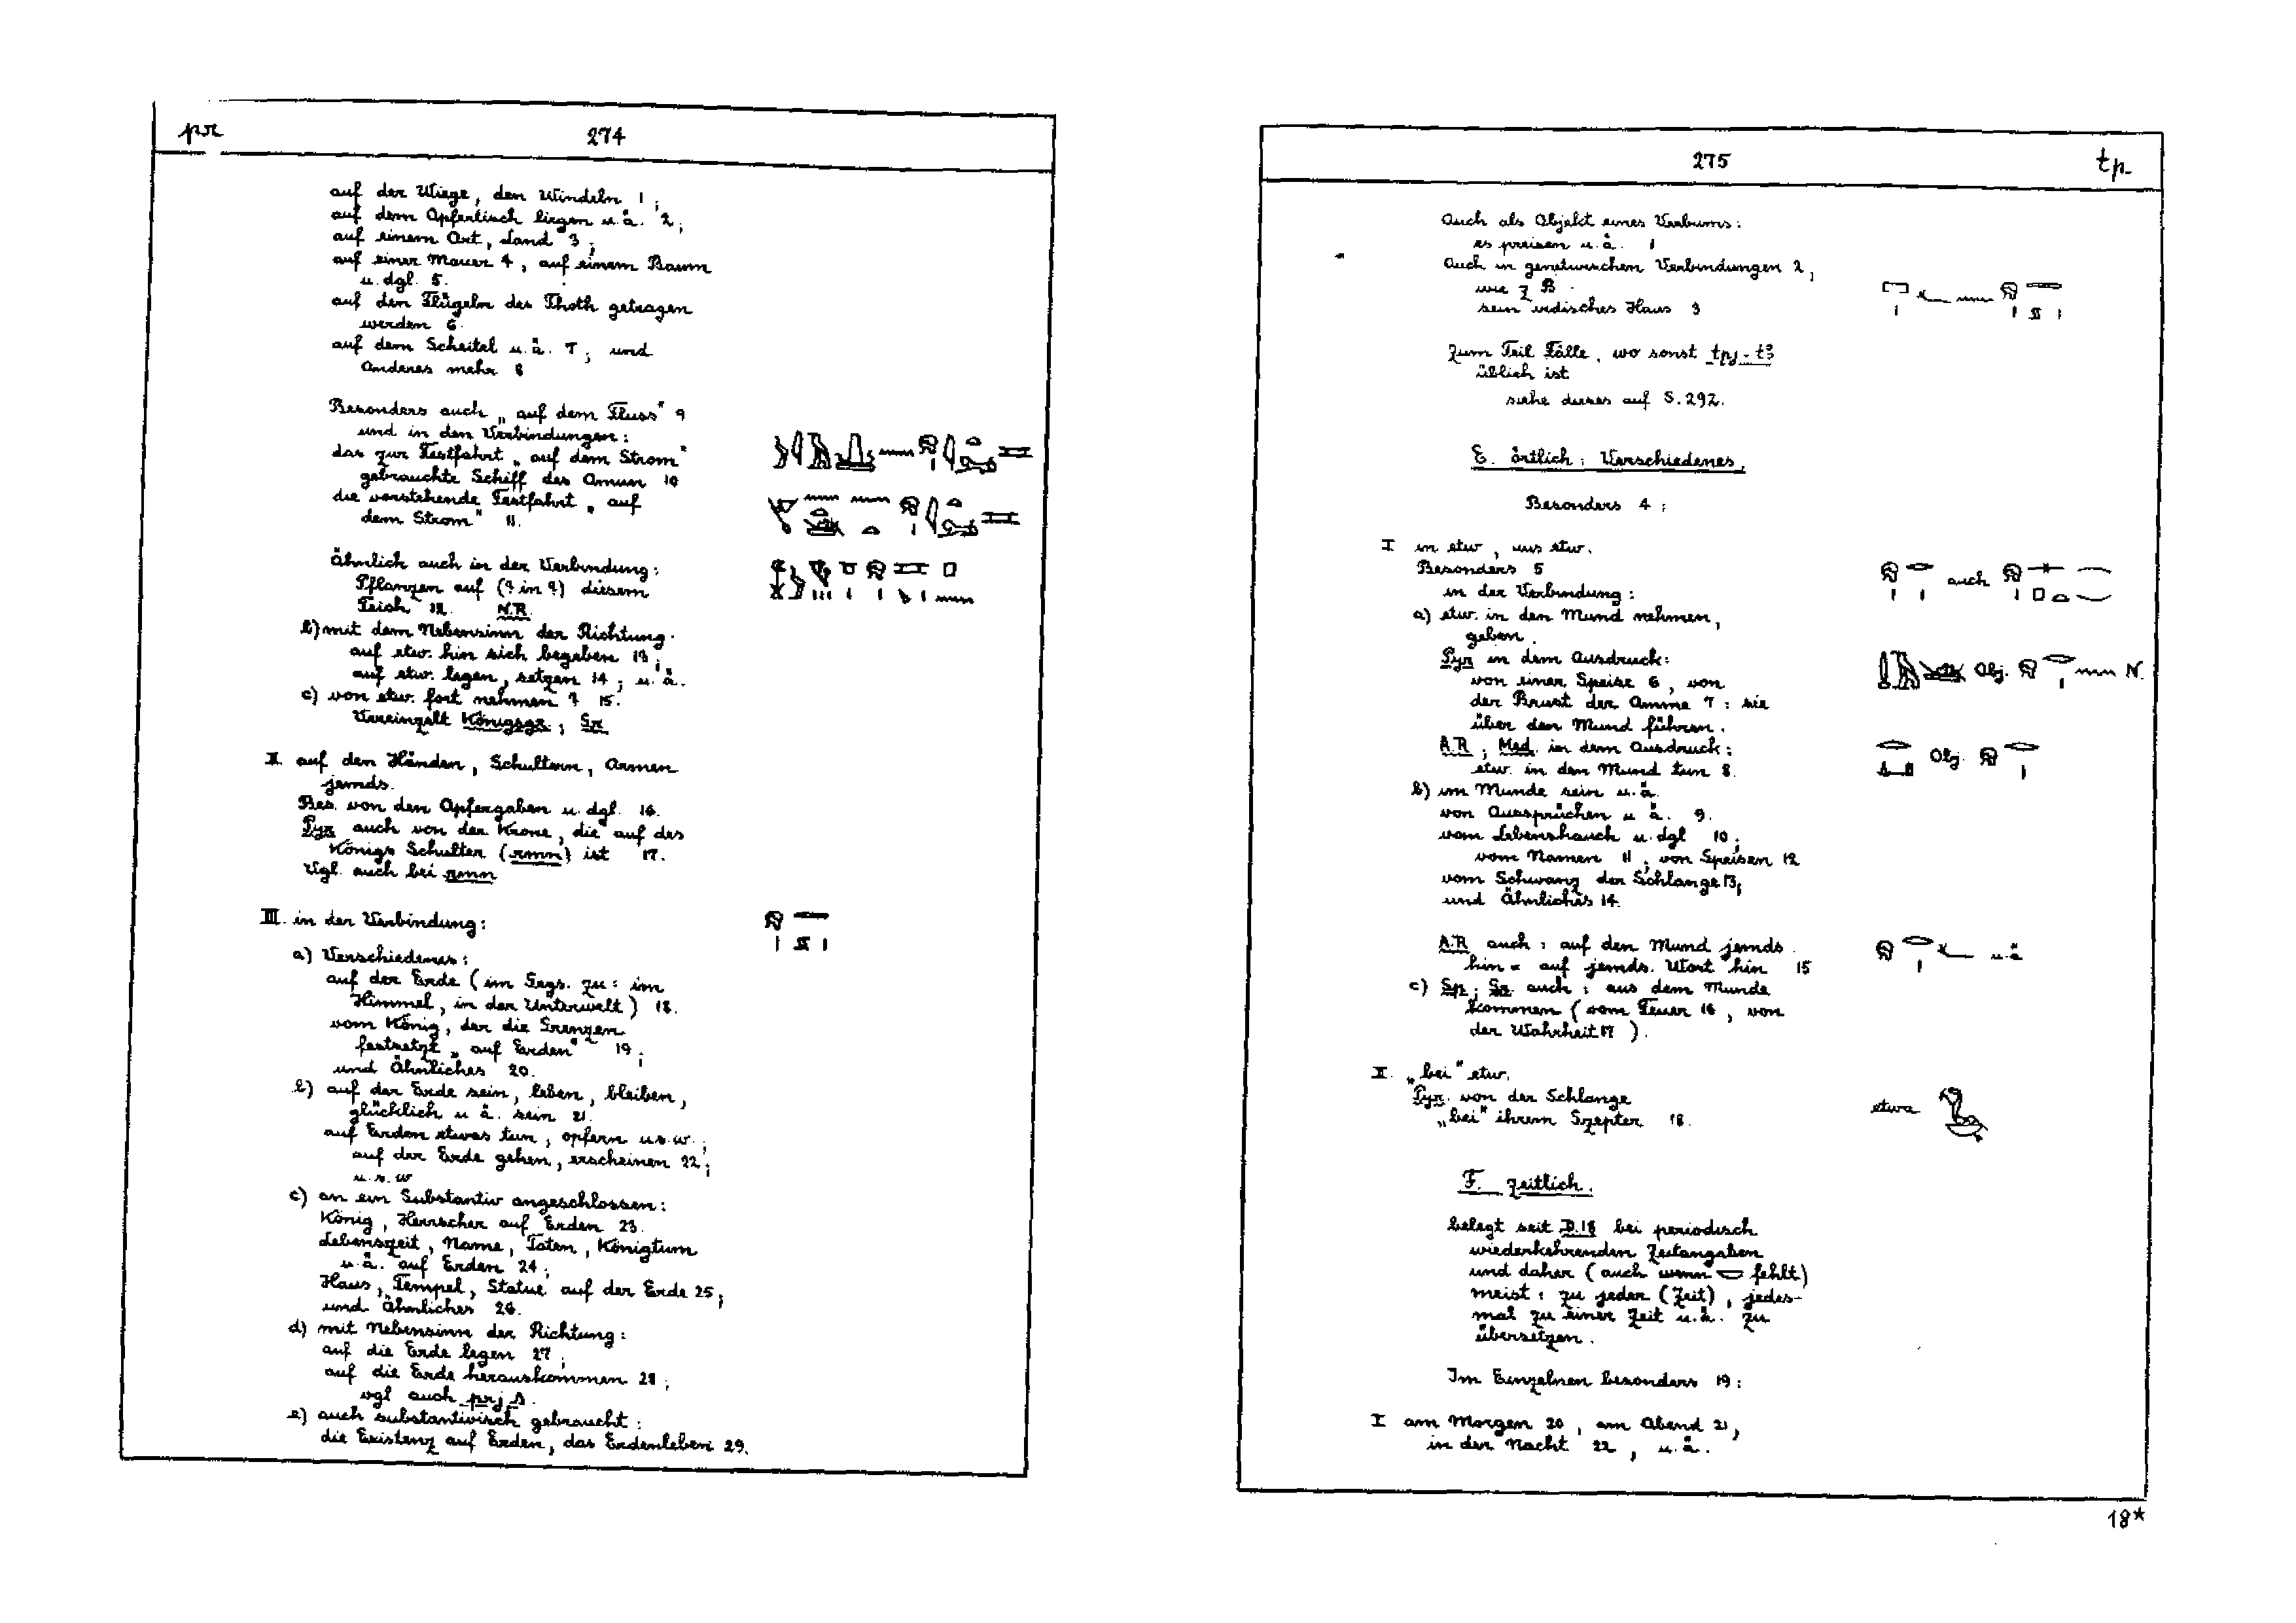 274
auf der Wiege, den Windeln 1;
auf dem Opfertisch liegen u.ä. 2;
auf einem Ort, Land 3;
auf einer Mauer 4, auf einem Baum
u. dgl. 5.
auf den Flügeln des Thoth getragen
werden 6.
auf dem Scheitel u.ä. 7; und
Anderes mehr 8
Besonders auch „auf dem Fluss" 9
und in den Verbindungen:
das zur Festfahrt „auf dem Strom"
gebrauchte Schiff des Amun 10
die vorstehende Festfahrt „auf
dem Strom" 11.
Ähnlich auch in der Verbindung:
Pflanzen auf (? in ?) diesem
Teich 12. N.R.
b) mit dem Nebensinn der Richtung.
auf etw. hin sich begeben 13;
auf etw. legen, setzen 14; u.ä.
c) von etw. fort nehmen ? 15.
Vereinzelt Königsgr.; Gr.
II. auf den Händen, Schultern, Armen
jemds.
Bes. von den Opfergaben u. dgl. 16.
Pyr. auch von der Krone, die auf des
Königs Schulter (rmn) ist 17.
Vgl. auch bei rmn
III. in der Verbindung:
a) Verschiedenes:
auf der Erde (im Ggs. zu: im
Himmel, in der Unterwelt) 18.
vom König, der die Grenzen
festsetzt „auf Erden" 19;
und Ähnliches 20.
b) auf der Erde sein, leben, bleiben,
glücklich u.ä. sein 21.
auf Erden etwas tun, opfern u.s.w.;
auf der Erde gehen, erscheinen 22;
u.s.w
c) an ein Substantiv angeschlossen:
König, Herrscher auf Erden 23.
Lebenszeit, Name, Taten, Königtum
u.ä. auf Erden 24;
Haus, Tempel, Statue auf der Erde 25;
und Ähnliches 26.
d) mit Nebensinn der Richtung:
auf die Erde legen 27;
auf die Erde herauskommen 28;
vgl auch prj
e) auch substantivisch gebraucht:
die Existenz auf Erden, das Erdenleben 29.
275 tp
Auch als Objekt eines Verbums:
es preisen u.ä. 1
Auch in genetivischen Verbindungen 2,
wie z B.
sein irdisches Haus 3
Zum Teil Fälle, wo sonst tpj-tꜣ
üblich ist
siehe dieses auf S. 292.
E. örtlich: Verschiedenes.
Besonders 4:
I in etw, aus etw.
Besonders 5 auch
in der Verbindung:
a) etw. in den Mund nehmen,
geben.
Pyr in dem Ausdruck: Obj. N.
von einer Speise 6, von
der Brust der Amme 7: sie
über den Mund führen.
A.R; Med. in dem Ausdruck: Obj.
etw. in den Mund tun 8.
b) im Munde sein u.ä.
von Aussprüchen u ä. 9.
vom Lebenshauch u. dgl 10;
vom Namen 11, von Speisen 12
vom Schwanz der Schlange 13;
und Ähnliches 14.
A.R auch: auf den Mund jemds. u.ä
hin = auf jemds. Wort hin 15
c) Sp.; Gr. auch: aus dem Munde
kommen (vom Feuer 16, von
der Wahrheit 17).
II. „bei" etw.
Pyr. von der Schlange etwa
„bei" ihrem Szepter 18.
F. zeitlich.
belegt seit D.18 bei periodisch
wiederkehrenden Zeitangaben
und daher (auch wenn fehlt)
meist: zu jeder (Zeit), jedes-
mal zu einer Zeit u.ä. zu
übersetzen.
Im Einzelnen besonders 19:
I am Morgen 20, am Abend 21,
in der Nacht 22, u.ä.
18*